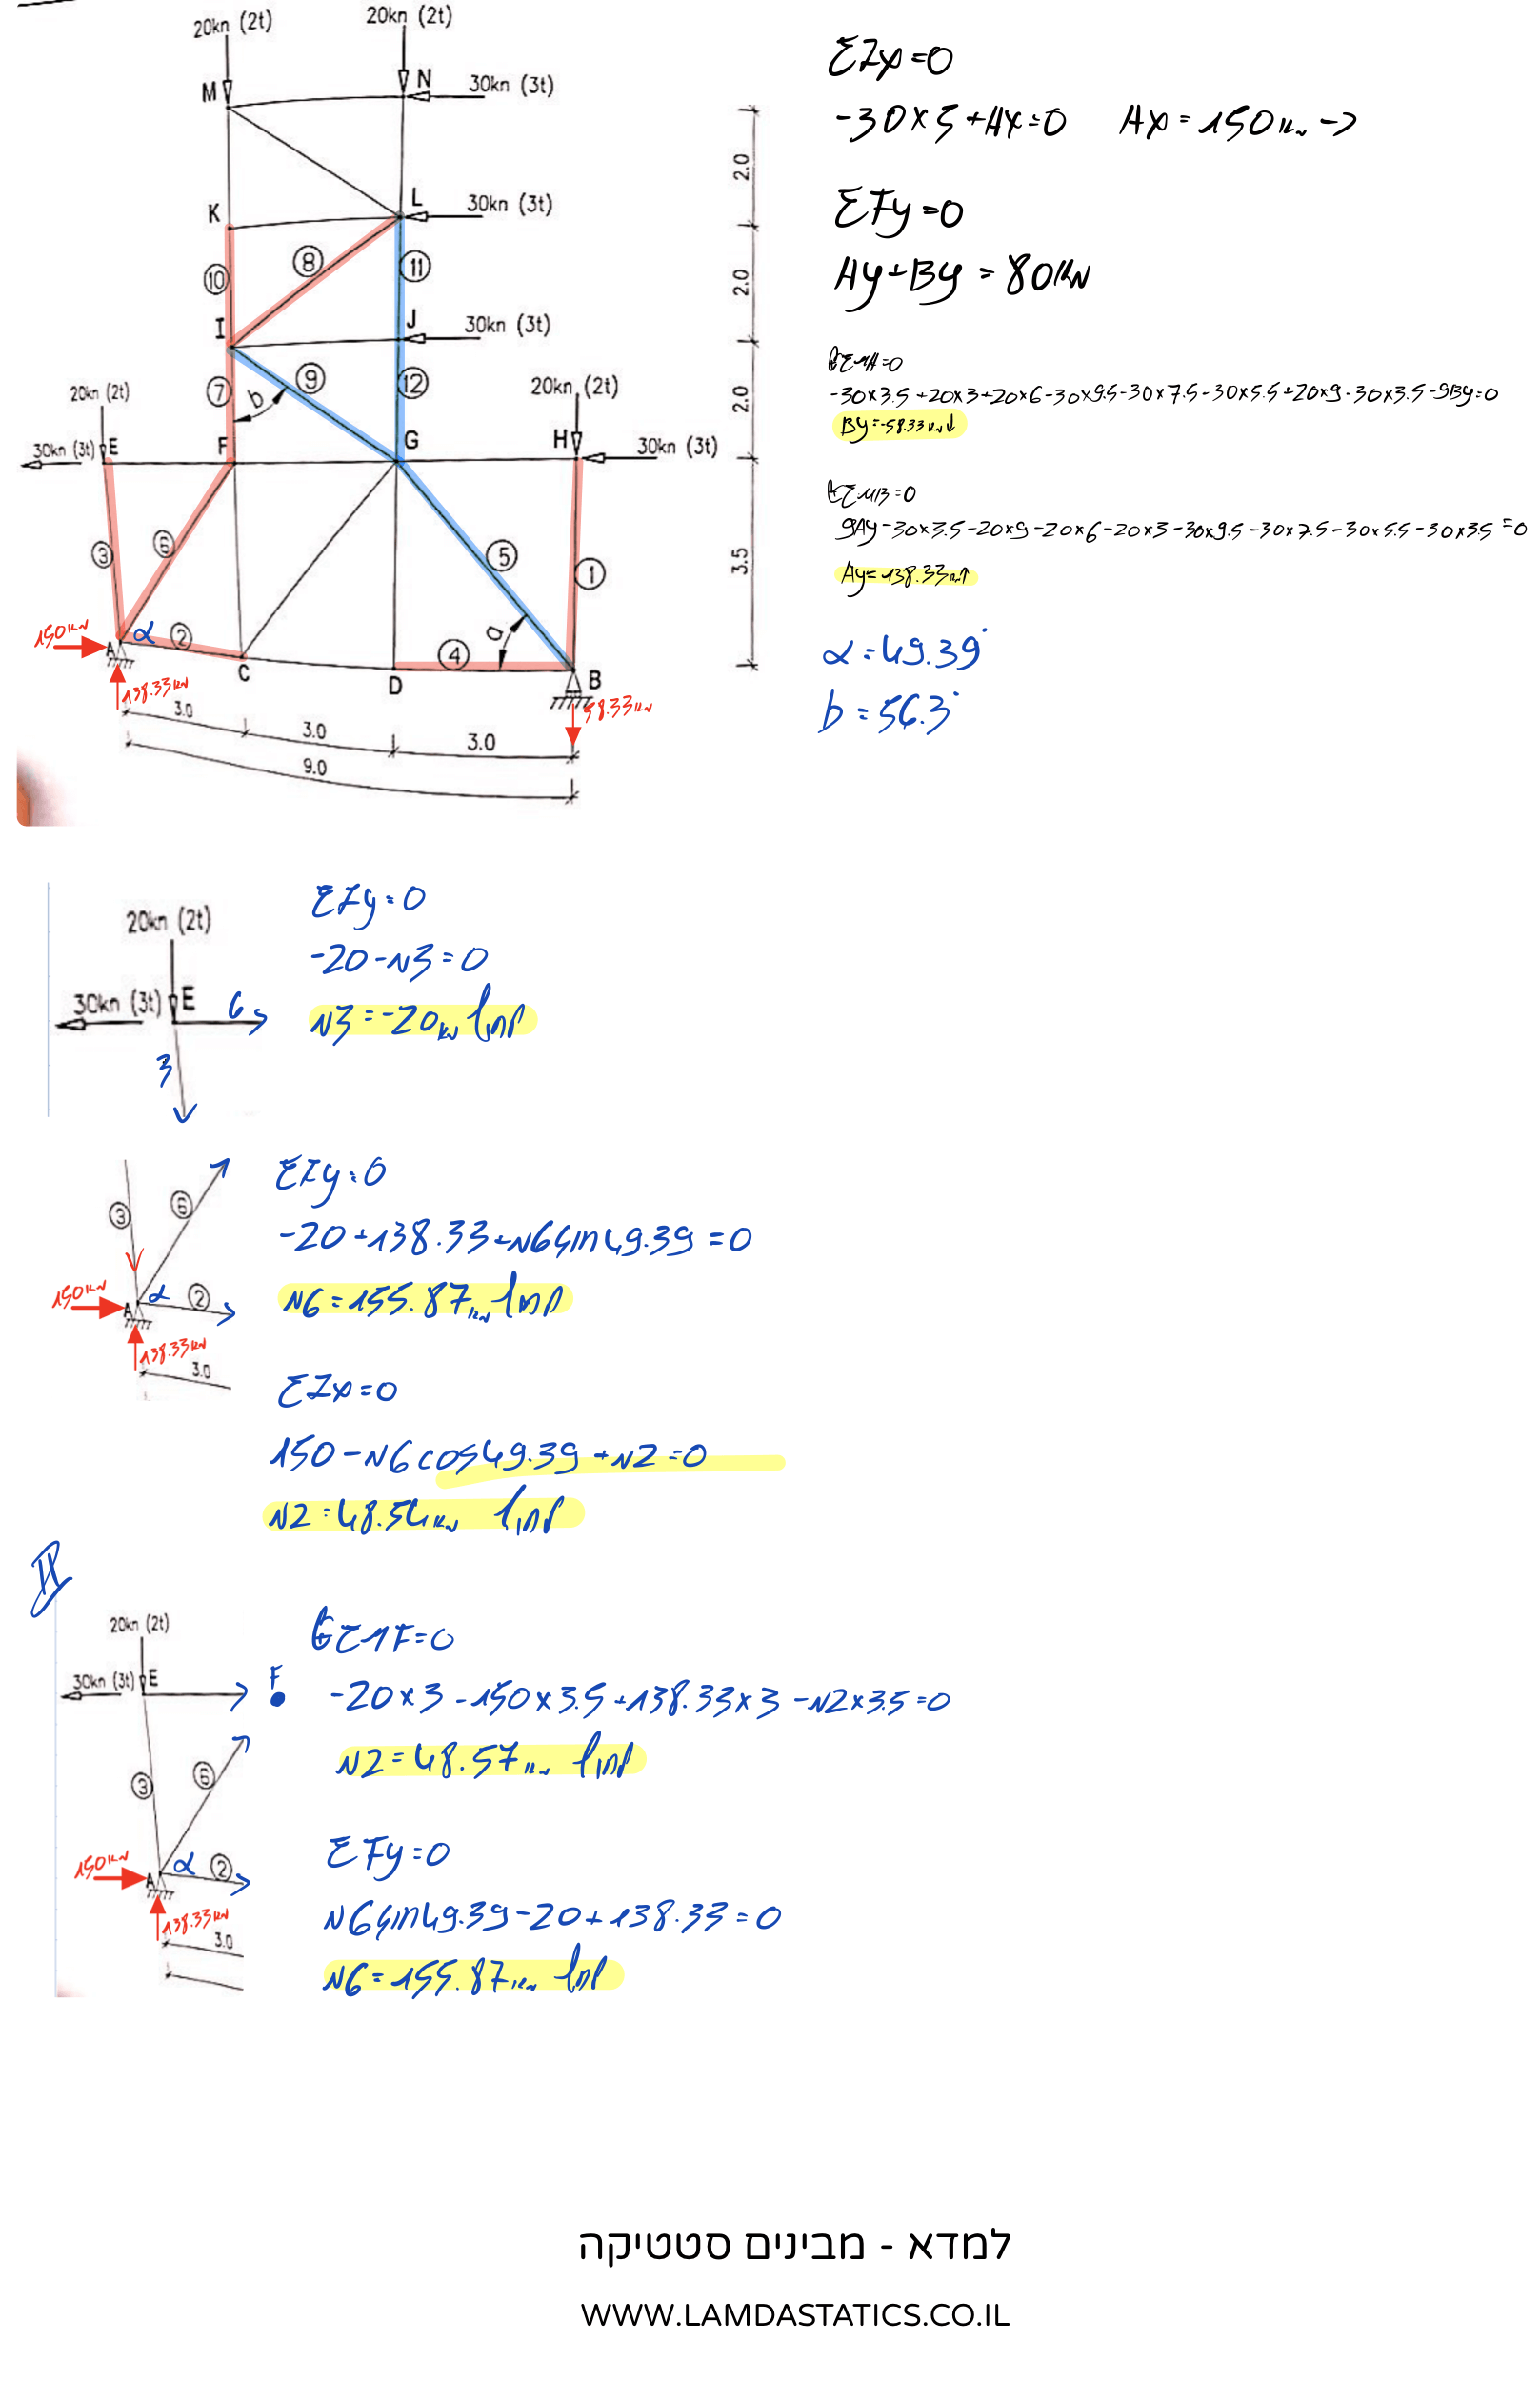 20kn (2t)
20kn (2t)
M
N
30kn (3t)
K
L
30kn (3t)
10
8
11
2.0
I
J
30kn (3t)
2.0
7
b
9
12
2.0
20kn (2t)
20kn (2t)
30kn (3t)
E
F
G
H
30kn (3t)
3
6
5
1
3.5
150kN
A
α
2
a
4
C
D
B
138.33kN
58.33kN
3.0
3.0
3.0
9.0
ΣFx=0
-30×5+Ax=0 Ax=150kN→
ΣFy=0
Ay+By=80kN
ΣMA=0
-30×3.5+20×3+20×6-30×9.5-30×7.5-30×5.5+20×9-30×3.5-9By=0
By=-58.33kN↓
ΣMB=0
9Ay-30×3.5-20×9-20×6-20×3-30×9.5-30×7.5-30×5.5-30×3.5=0
Ay=138.33kN↑
α=49.39°
b=56.3°
20kn (2t)
30kn (3t)
E
6
3
ΣFy=0
-20-N3=0
N3=-20kN
3
6
150kN
A
α
2
138.33kN
3.0
ΣFy=0
-20+138.33+N6sin49.39=0
N6=155.87kN
ΣFx=0
150-N6cos49.39+N2=0
N2=48.54kN
II
20kn (2t)
30kn (3t)
E
F
3
6
150kN
A
α
2
138.33kN
3.0
ΣMF=0
-20×3-150×3.5+138.33×3-N2×3.5=0
N2=48.57kN
ΣFy=0
N6sin49.39-20+138.33=0
N6=155.87kN
למדא - מבינים סטטיקה
WWW.LAMDASTATICS.CO.IL